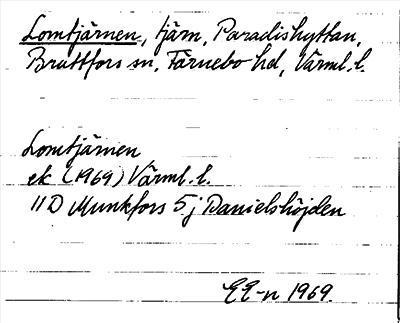 Lomtjärnen, tjärn, Paradishyttan,
Brattfors sn, Färnebo hd, Värml. l.
Lomtjärnen
ek (1969) Värml. l.
11D Munkfors 5 j Danielshöjden
EE-n 1969.